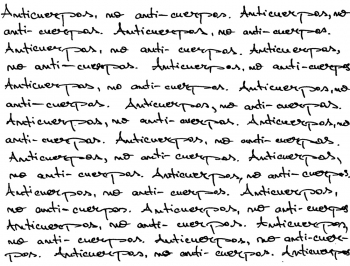 Anticuerpos, no anti-cuerpos. Anticuerpos, no
anti-cuerpos. Anticuerpos, no anti-cuerpos.
Anticuerpos, no anti-cuerpos. Anticuerpos,
no anti-cuerpos. Anticuerpos, no anti-cuerpos
Anticuerpos, no anti-cuerpos. Anticuerpos, no
anti-cuerpos. Anticuerpos, no anti-cuerpos.
Anticuerpos, no anti-cuerpos. Anticuerpos, no
anti-cuerpos. Anticuerpos, no anti-cuerpos.
Anticuerpos, no anti-cuerpos. Anticuerpos,
no anti-cuerpos. Anticuerpos, no anti-cuerpos.
Anticuerpos, no anti-cuerpos. Anticuerpos,
no anti-cuerpos. Anticuerpos, no anti-cuerpos
Anticuerpos, no anti-cuerpos. Anticuerpos,
no anti-cuerpos. Anticuerpos, no anti-cuer-
pos. Anticuerpos, no anti-cuerpos. Anticuerpos